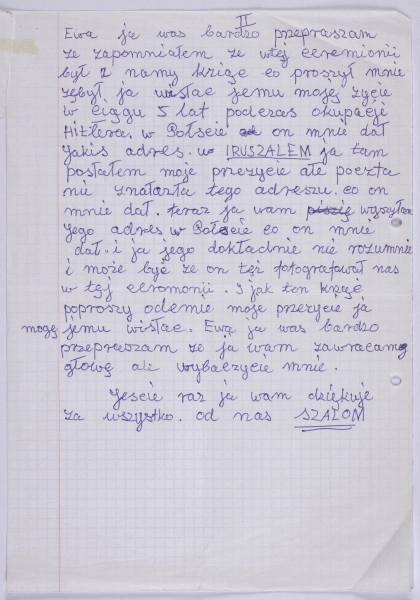 II
Ewa ja was bardzo przepraszam
ze zapomniałem ze wtej ceremionii
był z namy krzige co proszył mnie
zębył ja wistac jemu mojej życie
w ciągu 5 lat podczas okupacji
Hitlera. w Polscie on mnie dał
jakis adres. w IRUSZALEM ja tam
postałem moje przezycie ale poczta
nie znalazła tego adreszu. co on
mnie dał. teraz ja wam wyszyłam
jego adres w Polscie co on mnie
dał. i ja jego dokładnie nie rozumnie
i może być ze on też fotografował nas
w tej ceromonii. i jak ten krzige
poproszy odemie moje przezycie ja
mogę jemu wistac. Ewa ja was bardzo
przepraszam ze ja wam zawracamę
głowę ale wybaczycie mnie.
Jescie raz ja wam dziękuje
za wszystko. od nas SZALOM